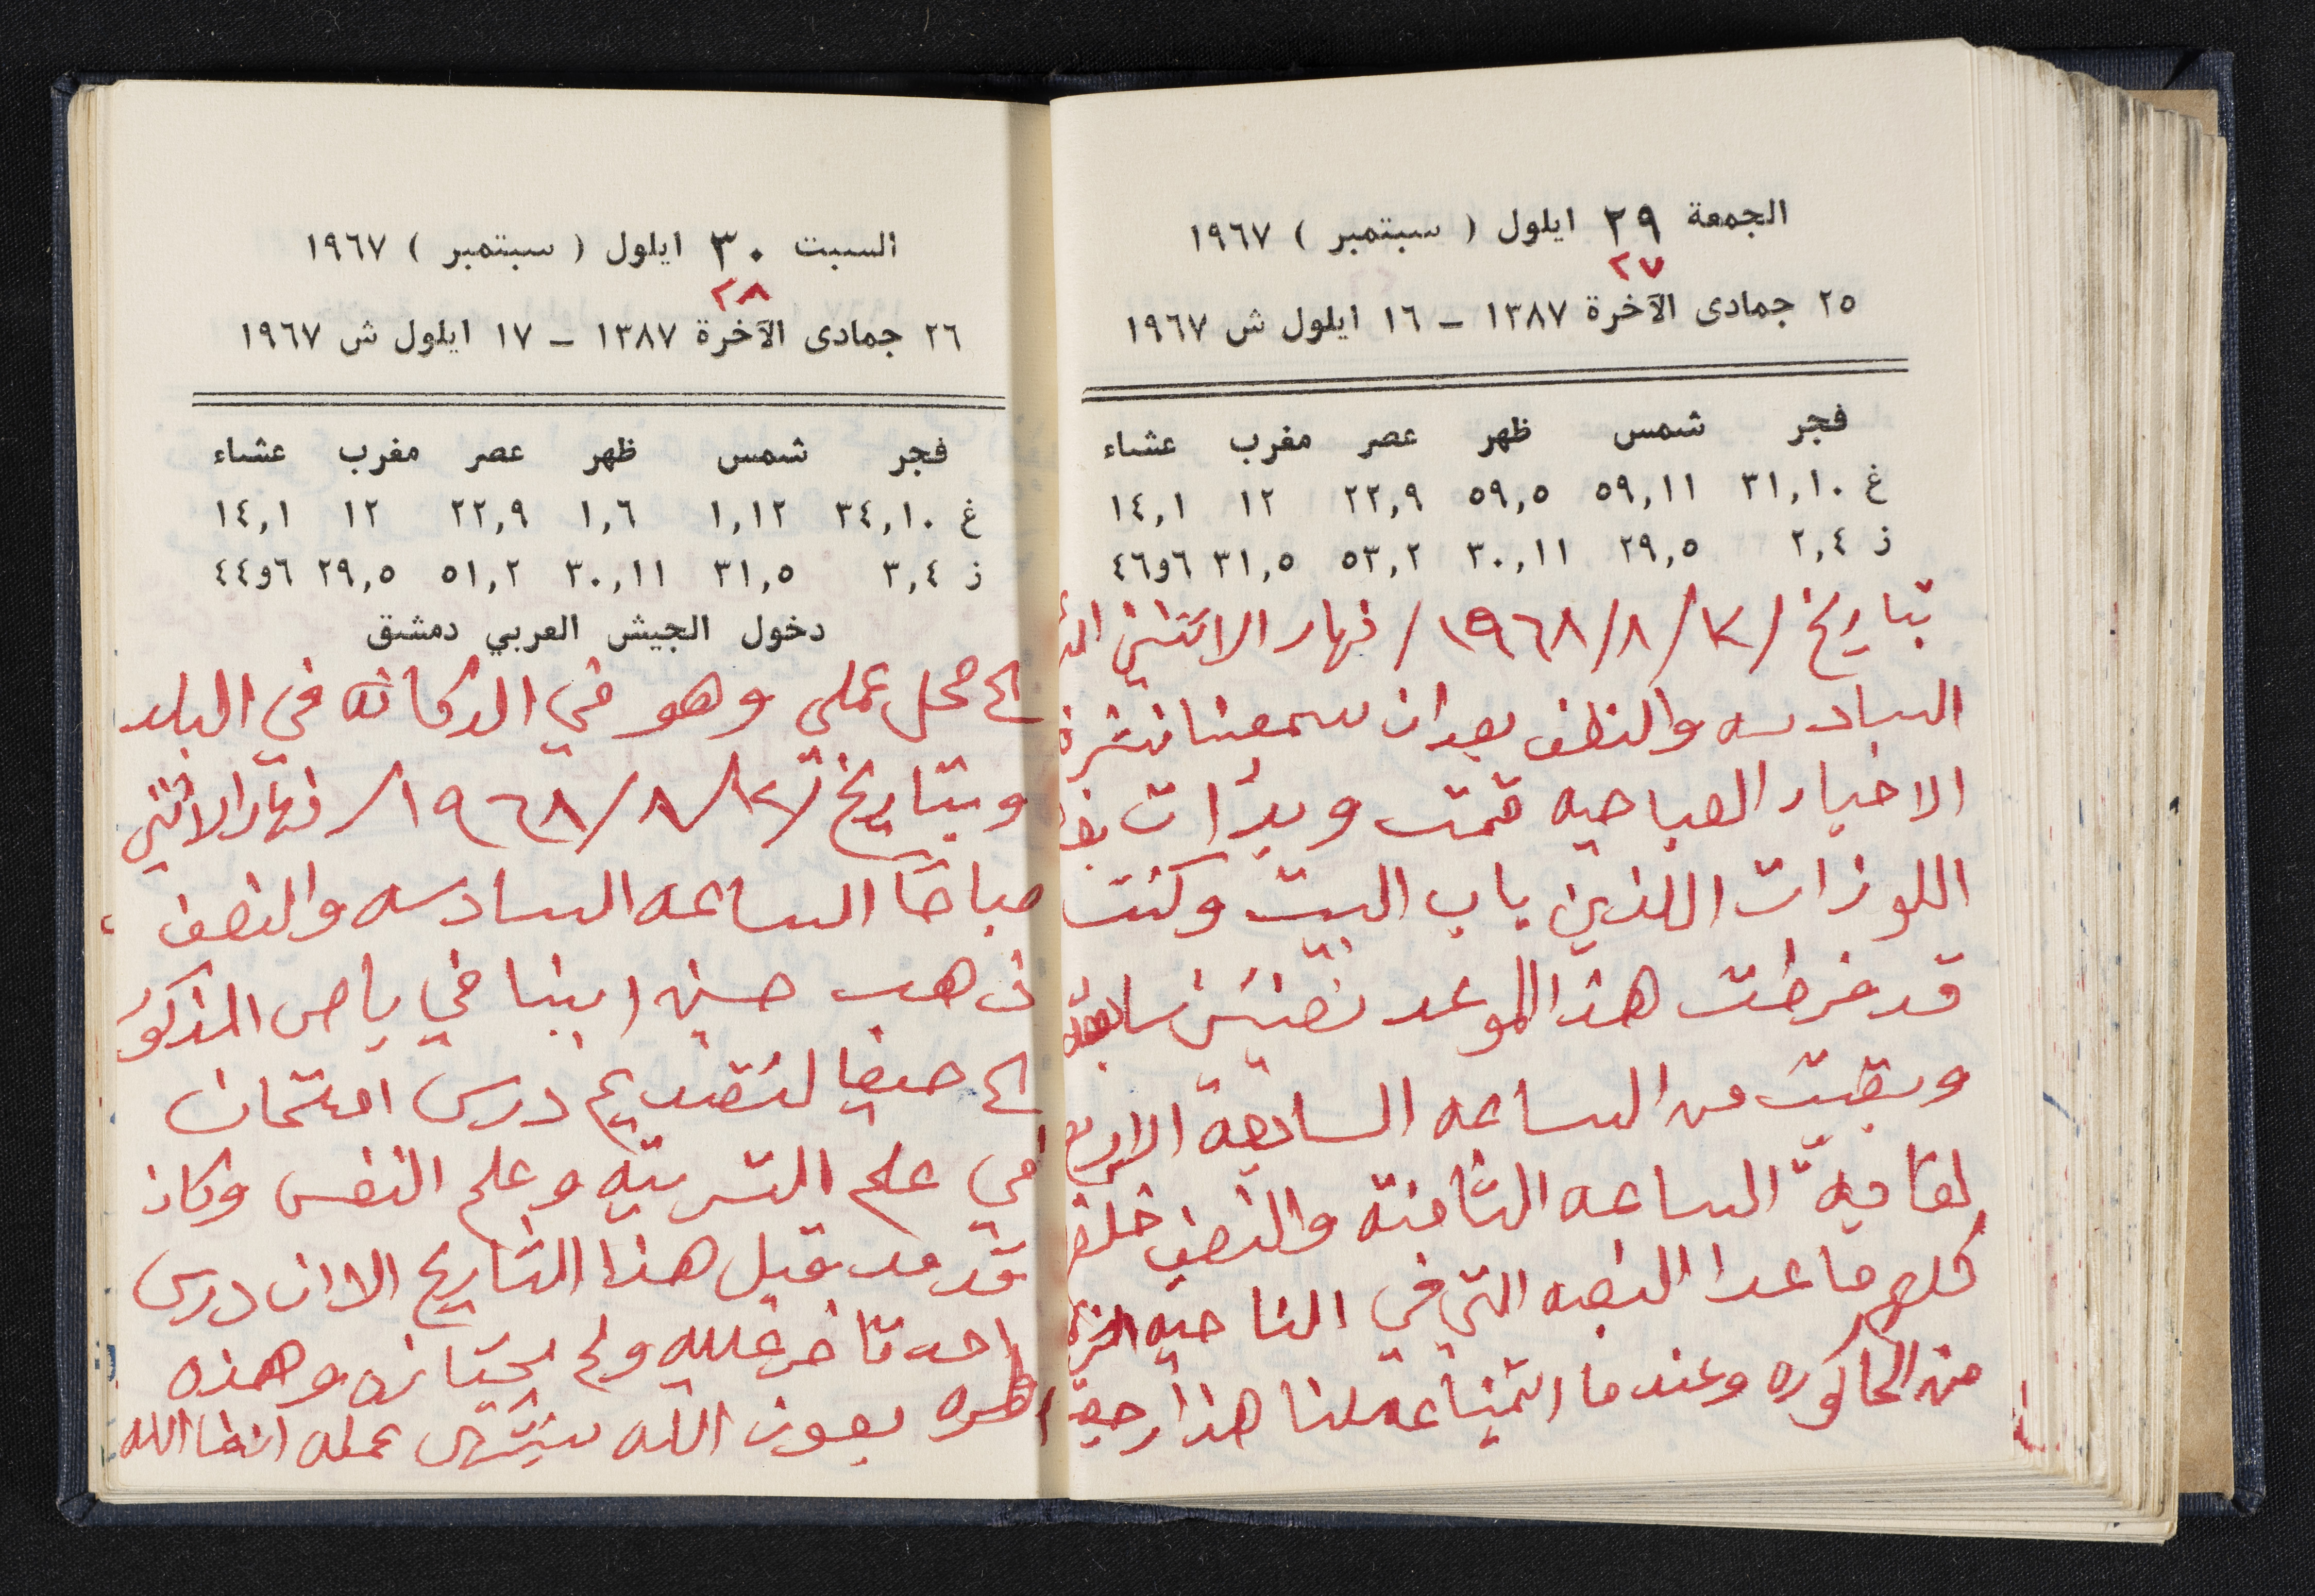 الجمعة ٢٩ ايلول ( سبتمبر ) ١٩٦٧
٢٧
٢٥ جمادى الآخرة ١٣٨٧ – ١٦ ايلول ش ١٩٦٧
فجر شمس ظهر عصر مغرب عشاء
غ ٣١,١٠ ٥٩,١١ ٥٩,٥ ٢٢,٩ ١٢ ١٤,١
ز ٢,٤ ٢٩,٥ ٣٠,١١ ٥٣,٢ ٣١,٥ ٦و٤٦
بتاريخ / ١٩٦٨/٨/ نهار الاثنين
السادسه والنصف بعد ان سمعنا نشرة
الاخبار الصباحيه قمت وبدأت
اللوزات اللذين باب البيت وكنت
قد فرطت هذا الموعد
وبقيت من الساعه السابعة الاربع
لغايةّ الساعه الثامنة والنصف
كلهم ماعدا النصبه التي في الناحيه
من الحاكوره وعندما اتمينا عملنا هذا رجعت
السبت ٣٠ ايلول ( سبتمبر ) ١٩٦٧
٢٨
٢٦ جمادى الآخرة ١٣٨٧ – ١٧ ايلول ش ١٩٦٧
فجر شمس ظهر عصر مغرب عشاء
غ ٣٤,١٠ ١,١٢ ١,٦ ٢٢,٩ ١٢ ١٤,١
ز ٣,٤ ٣١,٥ ٣٠,١١ ٥١,٢ ٢٩,٥ ٦و٤٤
دخول الجيش العربي دمشق
الى محل عملي وهو في الدكانه في البلد
وبتاريخ / ١٩٦٨/٨/ نهار الاثنين
صباحًا الساعه السادسه والنصف
ذهب حسين ابننا في باص المذكور
الى حيفا لتقديم درس امتحان
في علم التربيّه وعلم النفس وكان
قد قدمه قبل هذا التاريخ الا ان درس
واحد تأخر عليه ولم يجتازه وهذه
المره بعون الله سينتهي عمله انشا الله